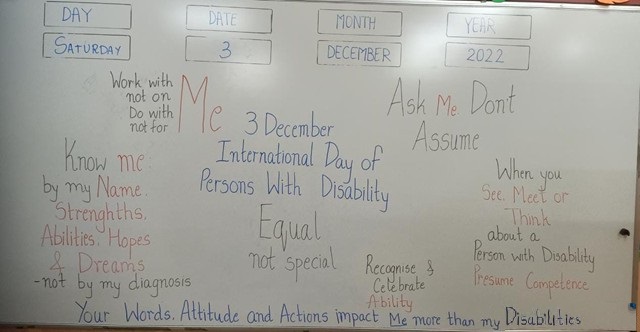 DAY DATE MONTH YEAR
SATURDAY 3 DECEMBER 2022
Work with
not on
Do with
not for
Me
Ask Me. Don't
Assume
3 December
International Day of
Persons With Disability
Know me:
by my Name.
Strenghths.
Abilities. Hopes
& Dreams
-not by my diagnosis
Equal
not special
When you
See, Meet or
Think
about a
Person with Disability
Presume Competence
Recognise &
Celebrate
Ability
Your Words. Attitude and Actions impact Me more than my Disabilities